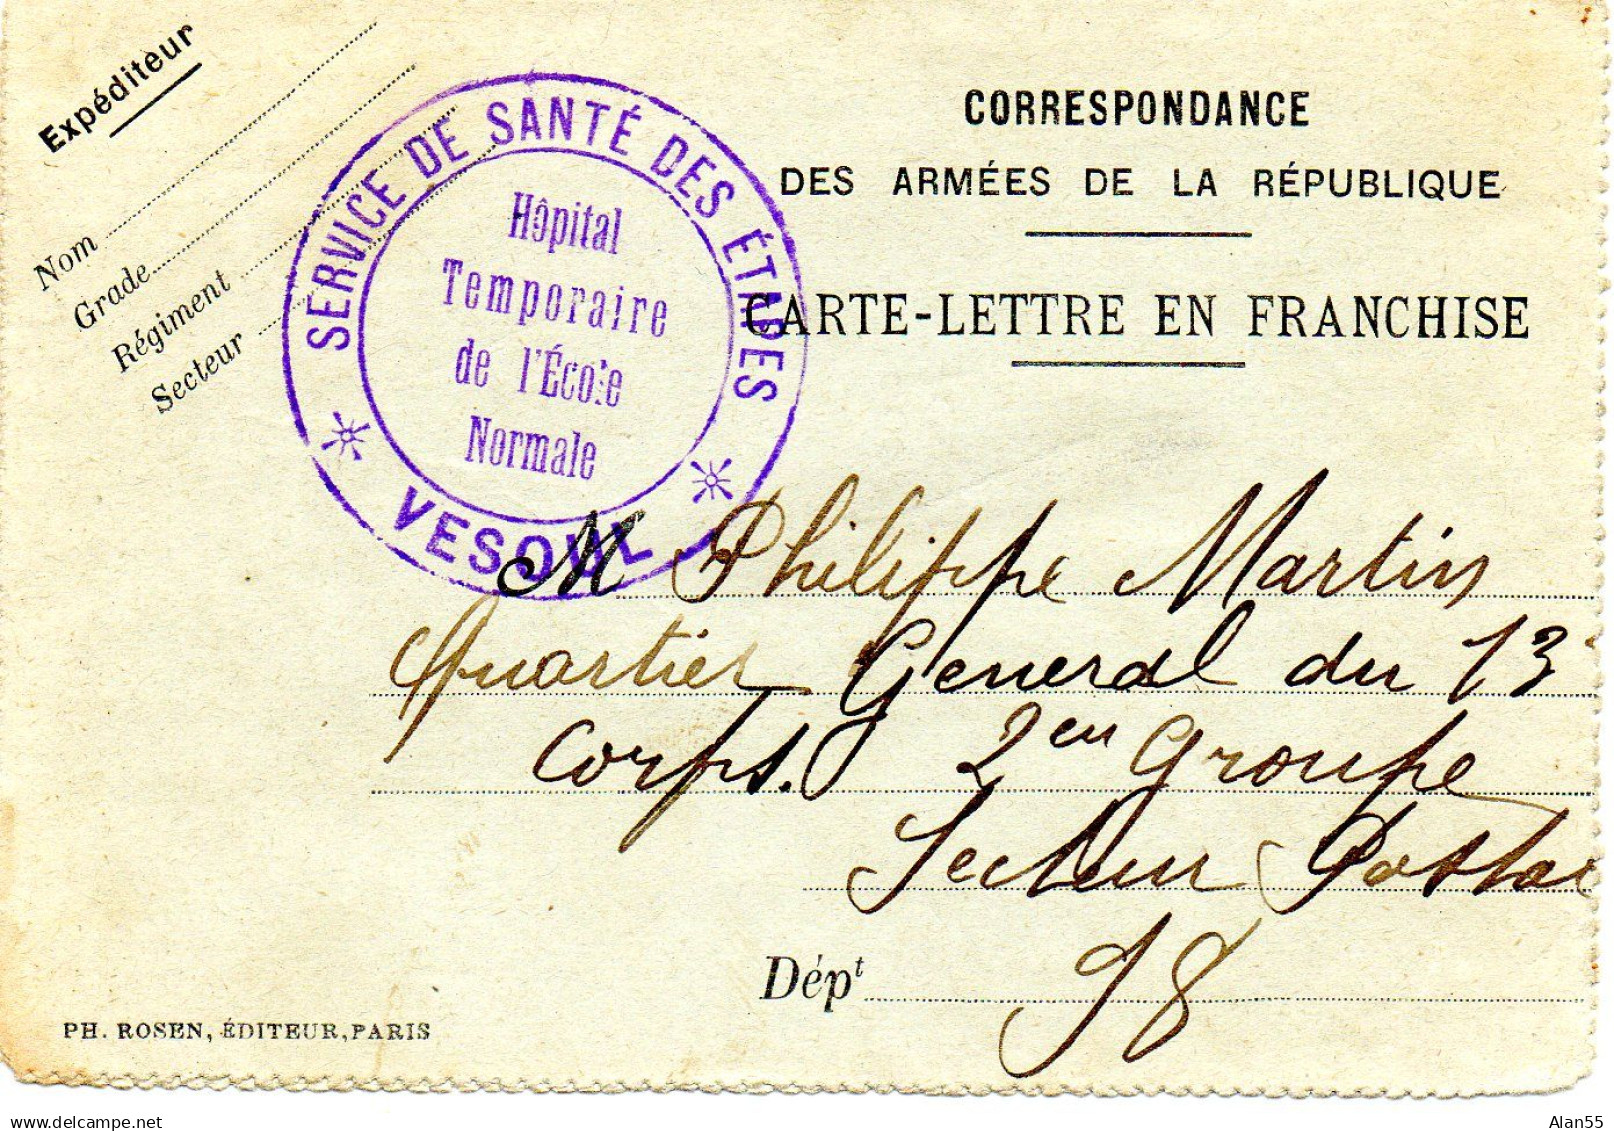 Expéditeur
Nom
Grade
Régiment
Secteur
SERVICE DE SANTÉ DES ÉTAPES
Hôpital
Temporaire
de l'École
Normale
* VESOUL *
CORRESPONDANCE
DES ARMÉES DE LA RÉPUBLIQUE
CARTE-LETTRE EN FRANCHISE
M Philippe Martin
Quartier General du 13
Corps. 2eu Groupe
Secteur Postal
Dépt 98
PH. ROSEN, ÉDITEUR, PARIS
Alan55